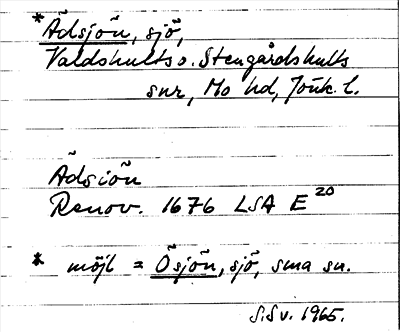 * Ädsjön, sjö,
Valdshults o. Stengårdshults
snr, Mo hd, Jönk. l.
Ädsiön
Renov. 1676 LSA E 20
* möjl = Ösjön, sjö, sma sn.
S.Sv. 1965.